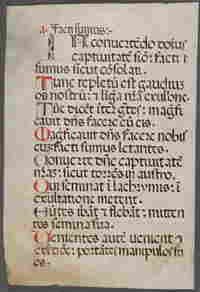 facti sumus:-
IN convertẽdo dominus
captivitatẽ siõ: facti
sumus sicut cõsolati.
Tunc repletũ est gaudiuʒ
os nostrũ: & lĩgua nr̃a exultõne.
Tũc dicẽt ĩter gẽtes: magĩfi
cavit dñs facere cũ eis.
Magñficavit dñs facere nobis
cuʒ: facti sumus letantes.
Convertte dñe captivitatẽ
nr̃aʒ: sicut torrẽs ĩ austro.
Qui seminãt ĩ lachrymis: ĩ
exultatione metent.
Eũtes ibãt & flebãt: mitten
tes semina sua.
Venientes autẽ venient cũ
exultõe: portãtes manipulos su
os.